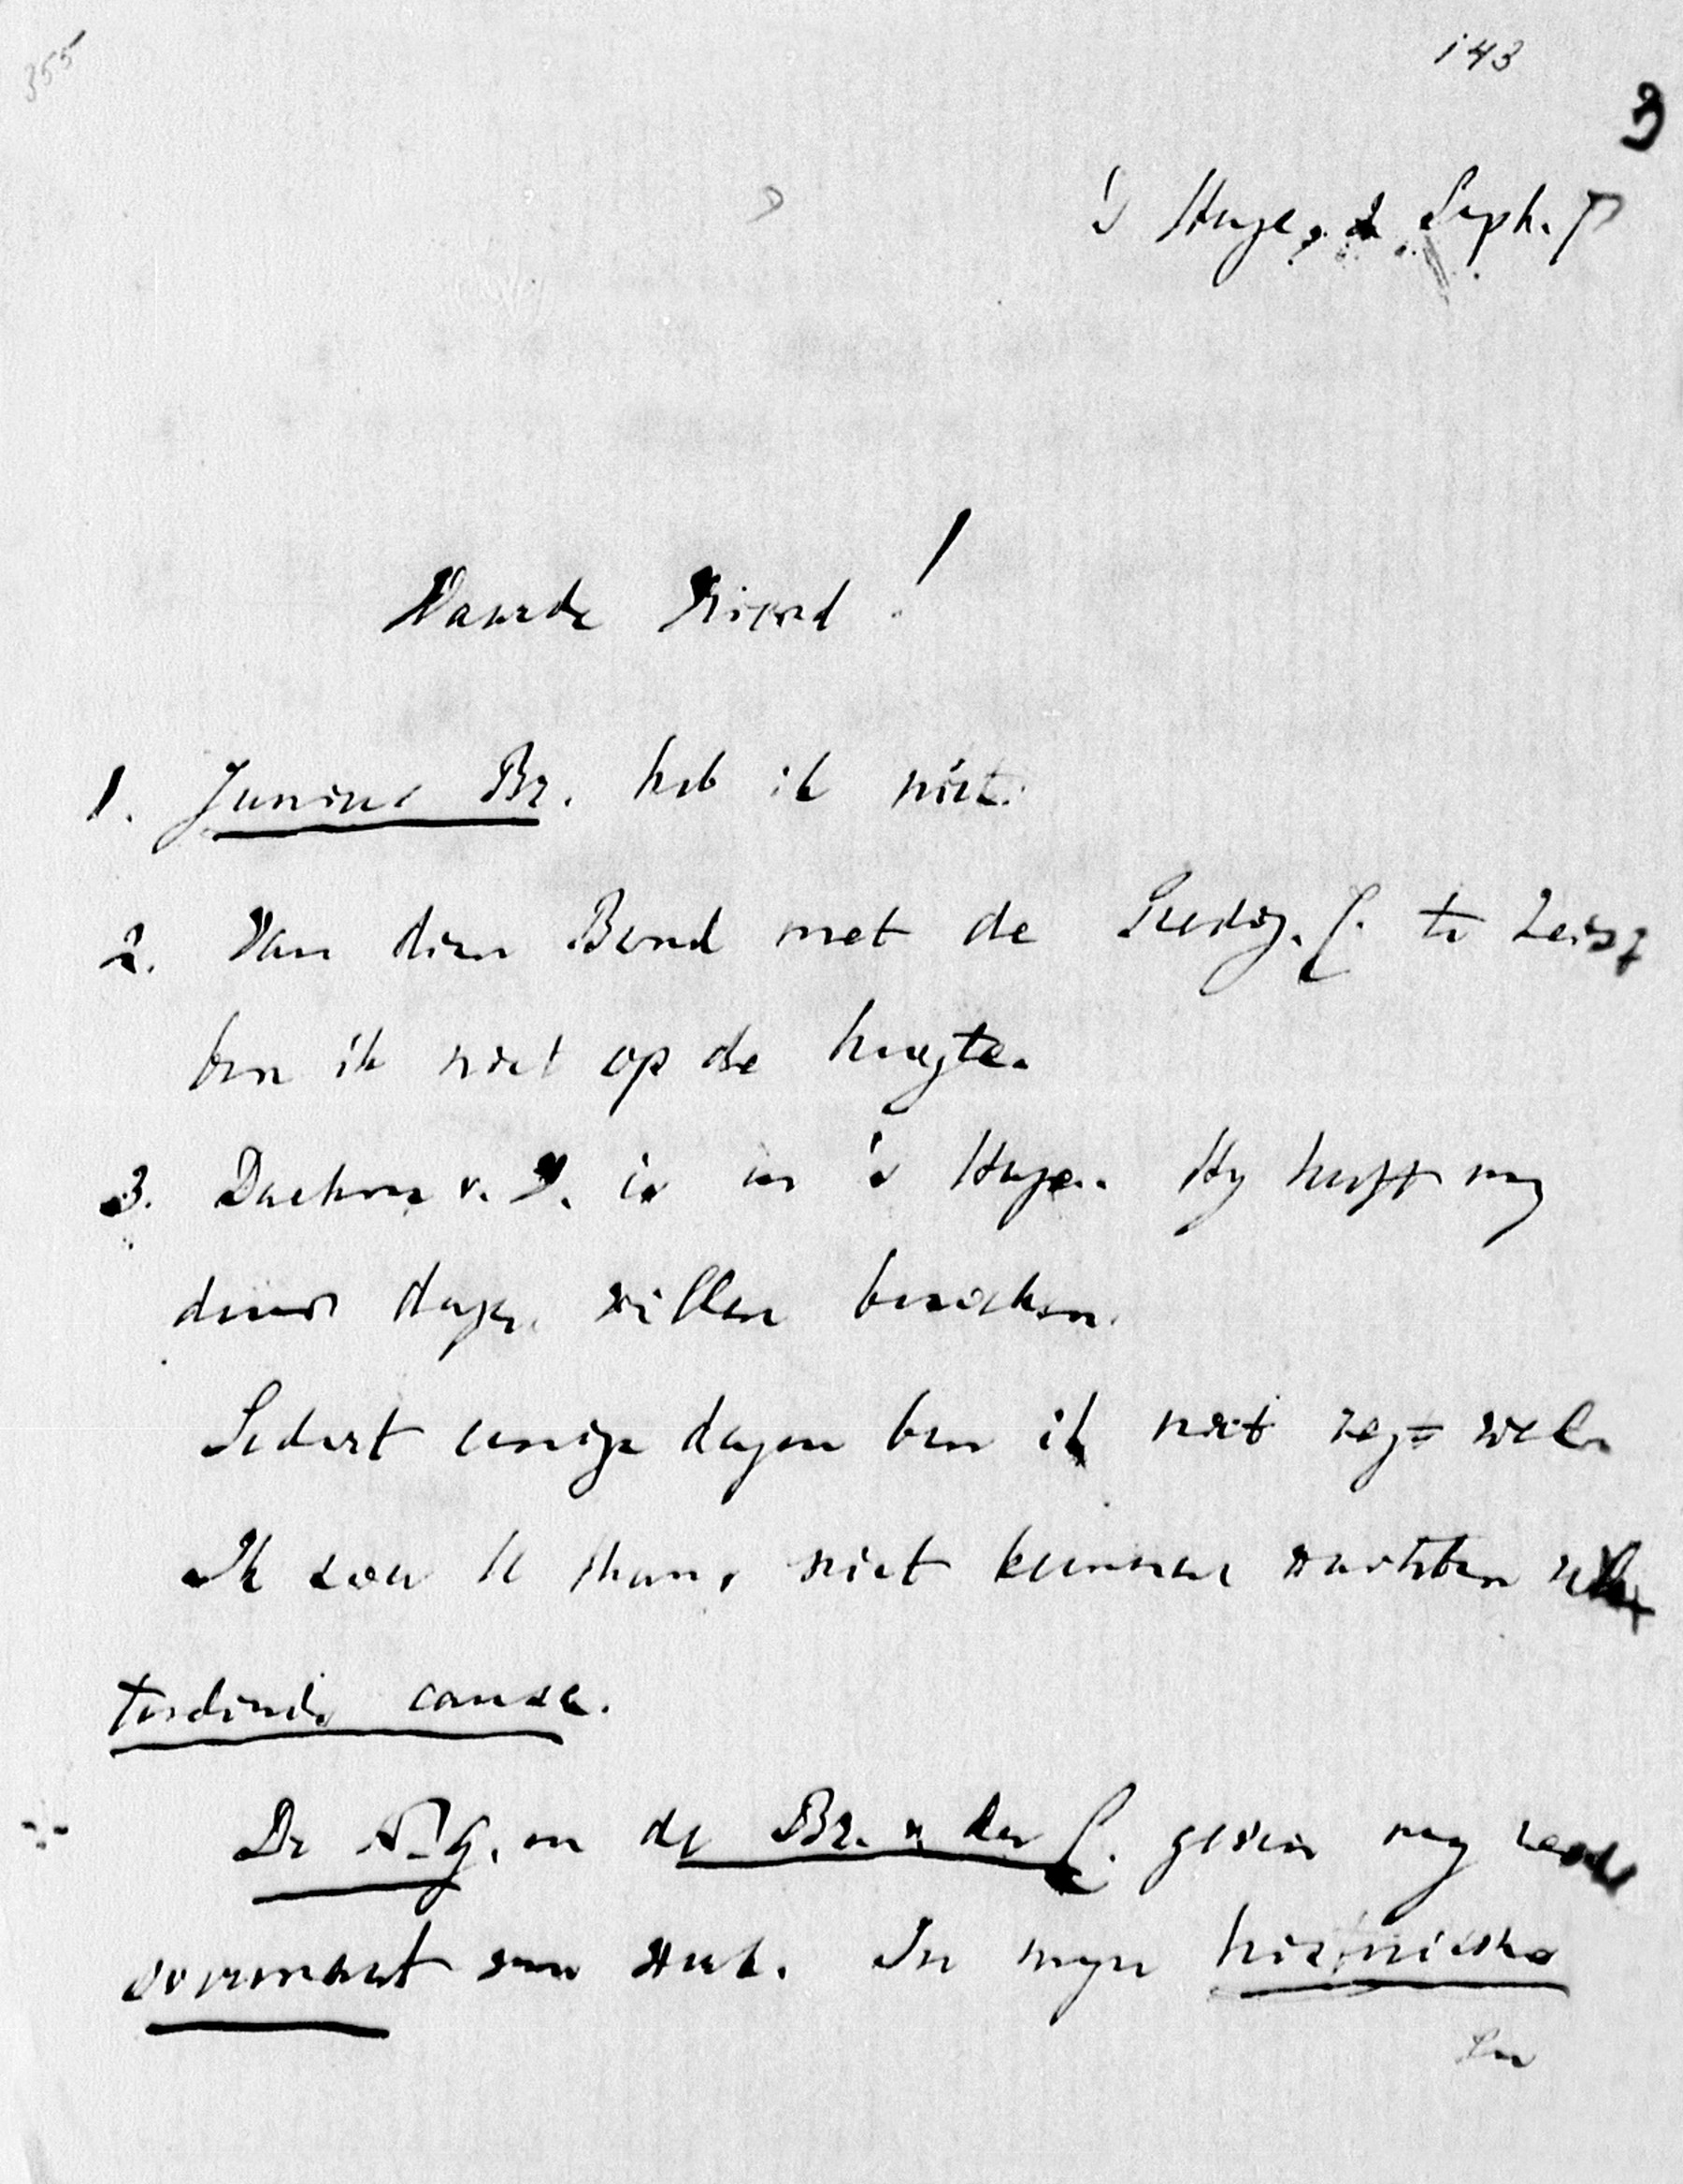 355
143
9
's Hage, 2 Sept. 
Waarde Vriend!
1. Junius Br. heb ik niet.
2. Van dien Bond met de Luedig. C. te Leipz
ben ik niet op de hoogte.
3. Duchm v. D. is in 's Hage. Hy heeft my
dezer dagen willen bezoeken.
Sedert eenige dagen ben ik niet regt wel.
Ik zou U thans niet kunnen wachten
dicendi causa.
De N. G. en de Br. v. der C. geven my
overmaat van stof. In myn historische